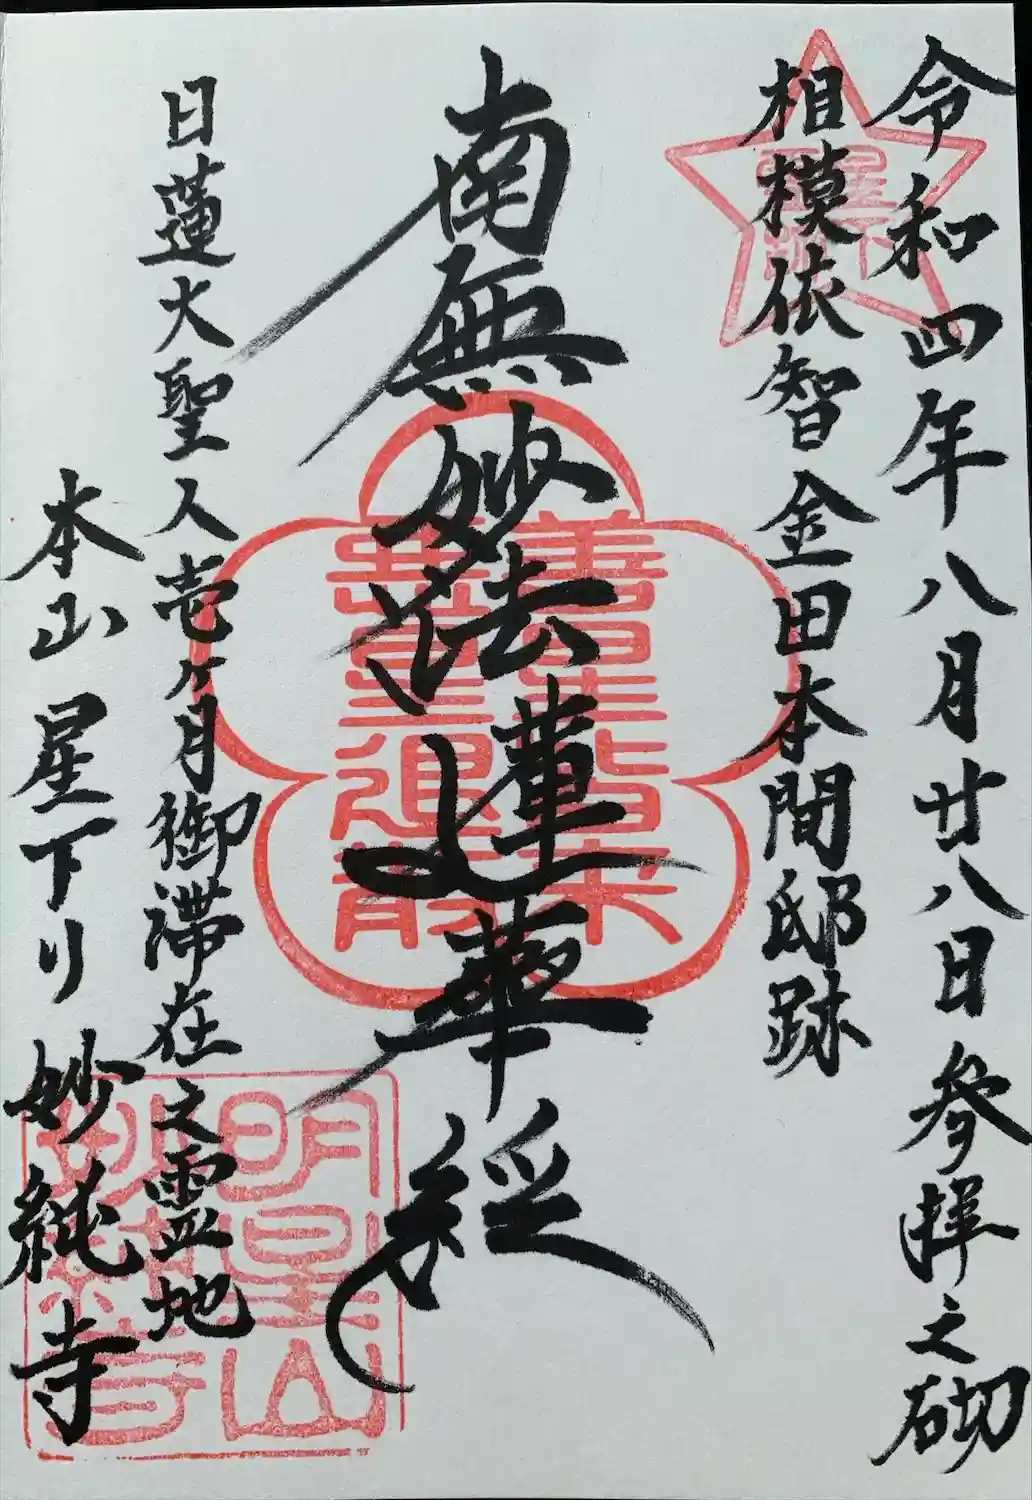 令和四年八月廿八日参拝之砌
相模依智金田本間邸跡
南無妙法蓮華経
日蓮大聖人壱ヶ月御滞在之霊地
本山星下り妙純寺
星下り
善星皆来
悪星退散
明星山
妙純寺